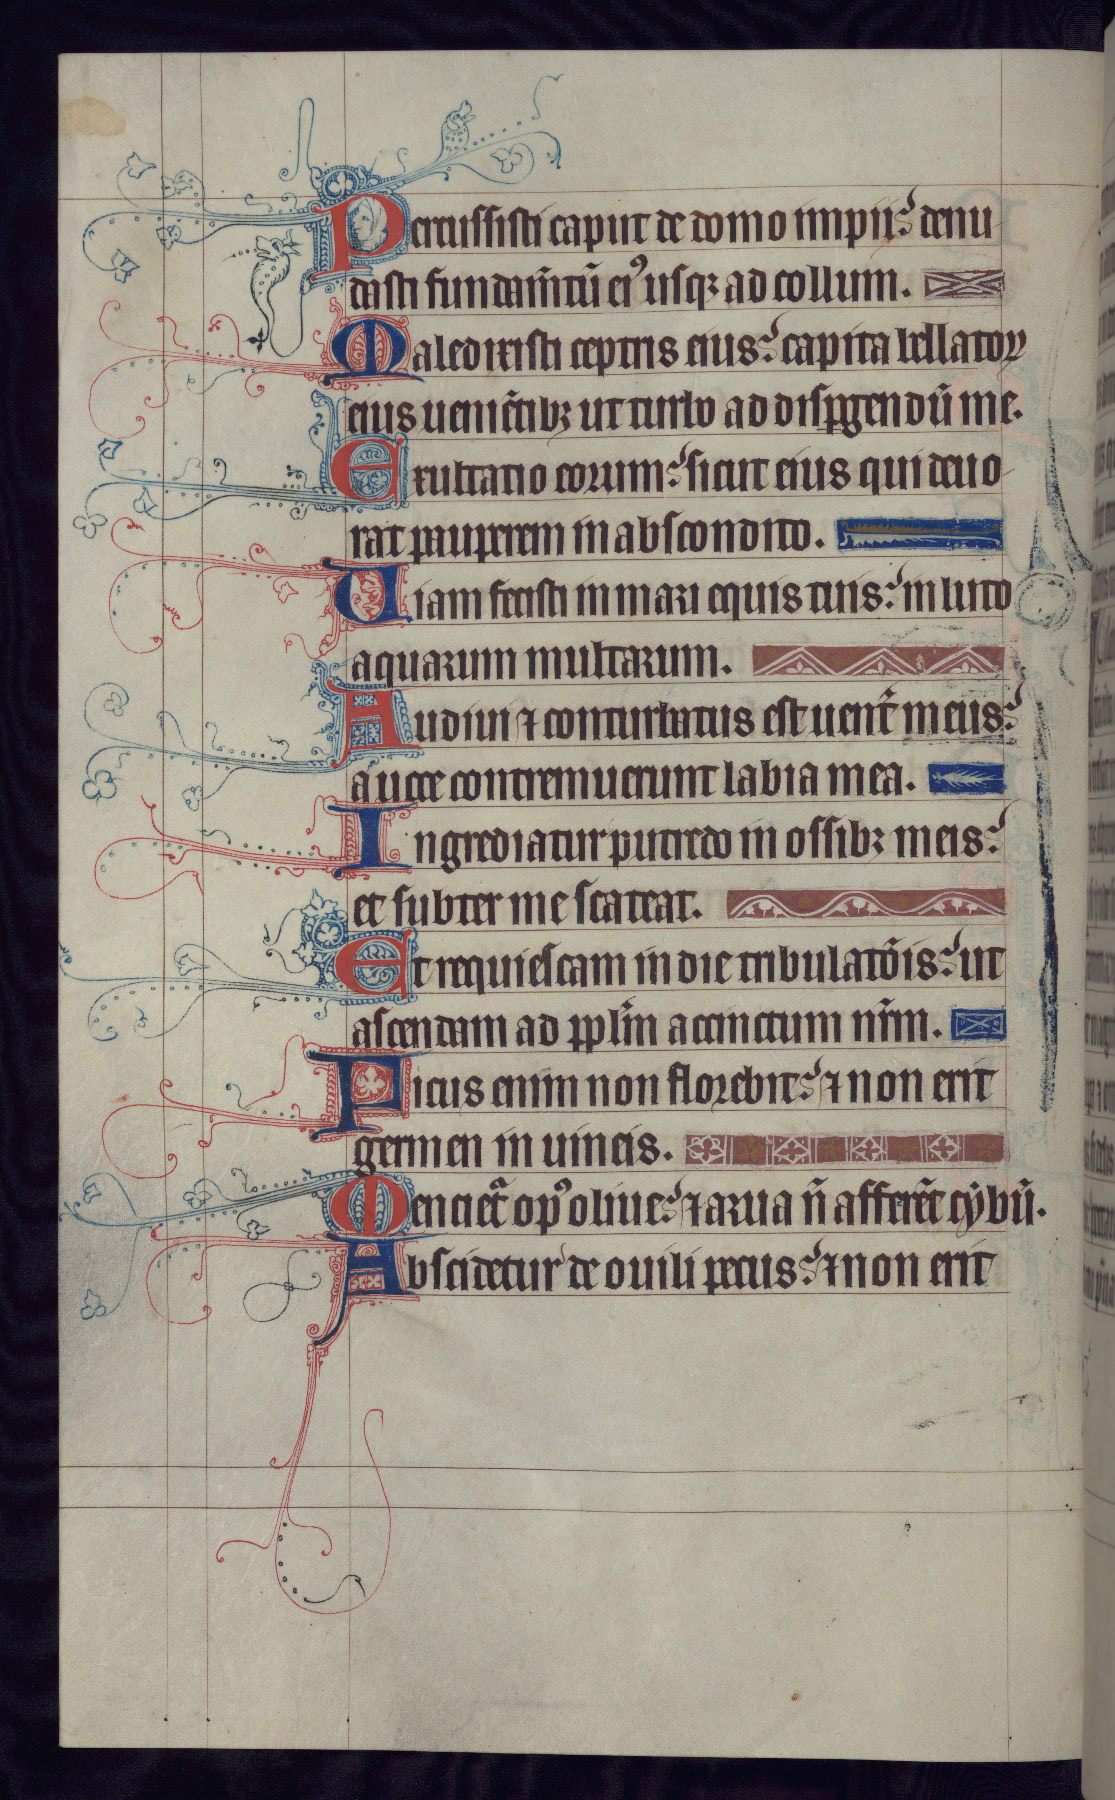 Percussisti caput de domo impii: denu
dasti fundam̄tū ei⁹ usqꝫ ad collum.
Maledixisti ceptris eius: capita bellatoꝝ
eius ueniētibꝫ ut turbo ad disꝑgendū me.
Exultatio eorum: sicut eius qui deuo
rat pauperem in abscondito.
Uiam fecisti in mari equis tuis: in luto
aquarum multarum.
Audiui ⁊ conturbatus est uent̄ meus:
a uoce contremuerunt labia mea.
Ingrediatur putredo in ossibꝫ meis:
et subter me scateat.
Et requiescam in die tribulatōis: ut
ascendam ad ppl̄m accinctum nr̄m.
Ficus enim non florebit: ⁊ non erit
germen in uineis.
Menciet̄ op⁹ oliue: ⁊ arua n̄ afferēt cybū.
Abscidetur de ouili pecus: ⁊ non erit